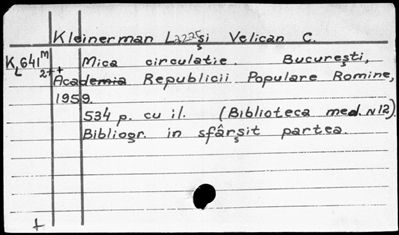 Kleinerman L. și Velican C.
K641m Mica circulatie. Bucureşti,
2++ Academia Republicii Populare Romine,
1959.
534 p. cu il. (Biblioteca med. N12).
Bibliogr. in sfârşit partea.